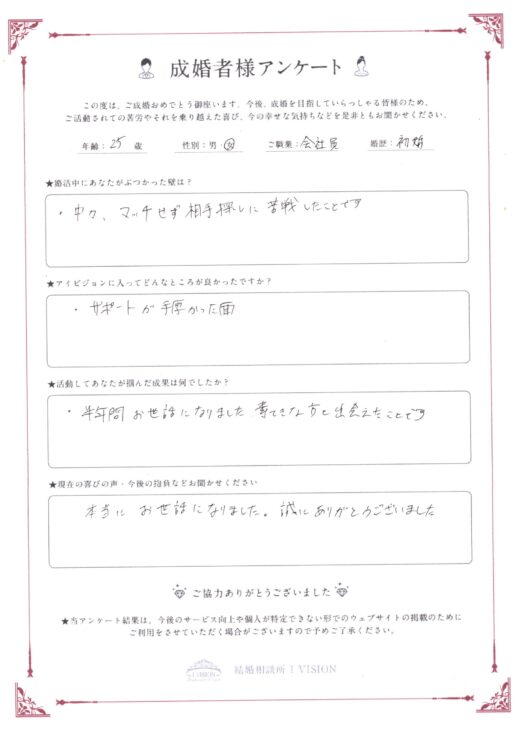 成婚者様アンケート
この度は、ご成婚おめでとう御座います。今後、成婚を目指していらっしゃる皆様のため、
ご活動されての苦労やそれを乗り越えた喜び、今の幸せな気持ちなどを是非ともお聞かせください。
年齢：25 歳 性別：男・女 ご職業：会社員 婚歴：初婚
★婚活中にあなたがぶつかった壁は？
・中々、マッチせず相手探しに苦戦したことです
★アイビジョンに入ってどんなところが良かったですか？
・サポートが手厚かった面
★活動してあなたが掴んだ成果は何でしたか？
・半年間お世話になりました 素てきな方と出会えたことです
★現在の喜びの声・今後の抱負などお聞かせください
本当に お世話になりました。誠にありがとうございました
ご協力ありがとうございました
★当アンケート結果は、今後のサービス向上や個人が特定できない形でのウェブサイトの掲載のために
ご利用をさせていただく場合がございますので予めご了承ください。
I VISION
結婚相談所 I VISION